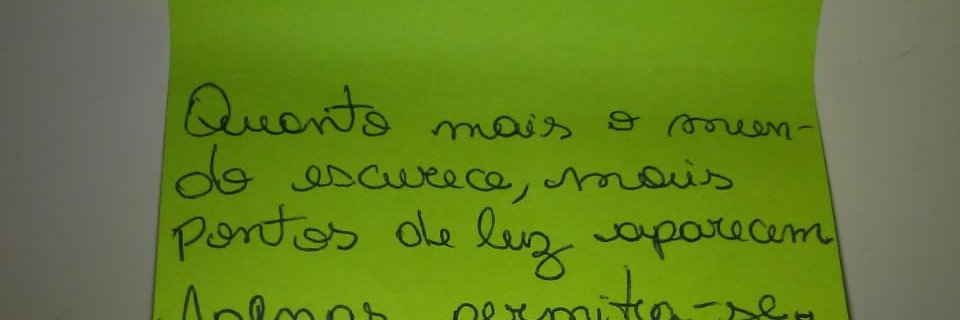 Quanto mais o mun-
do escurece, mais
pontos de luz aparecem
Apenas permita-se.